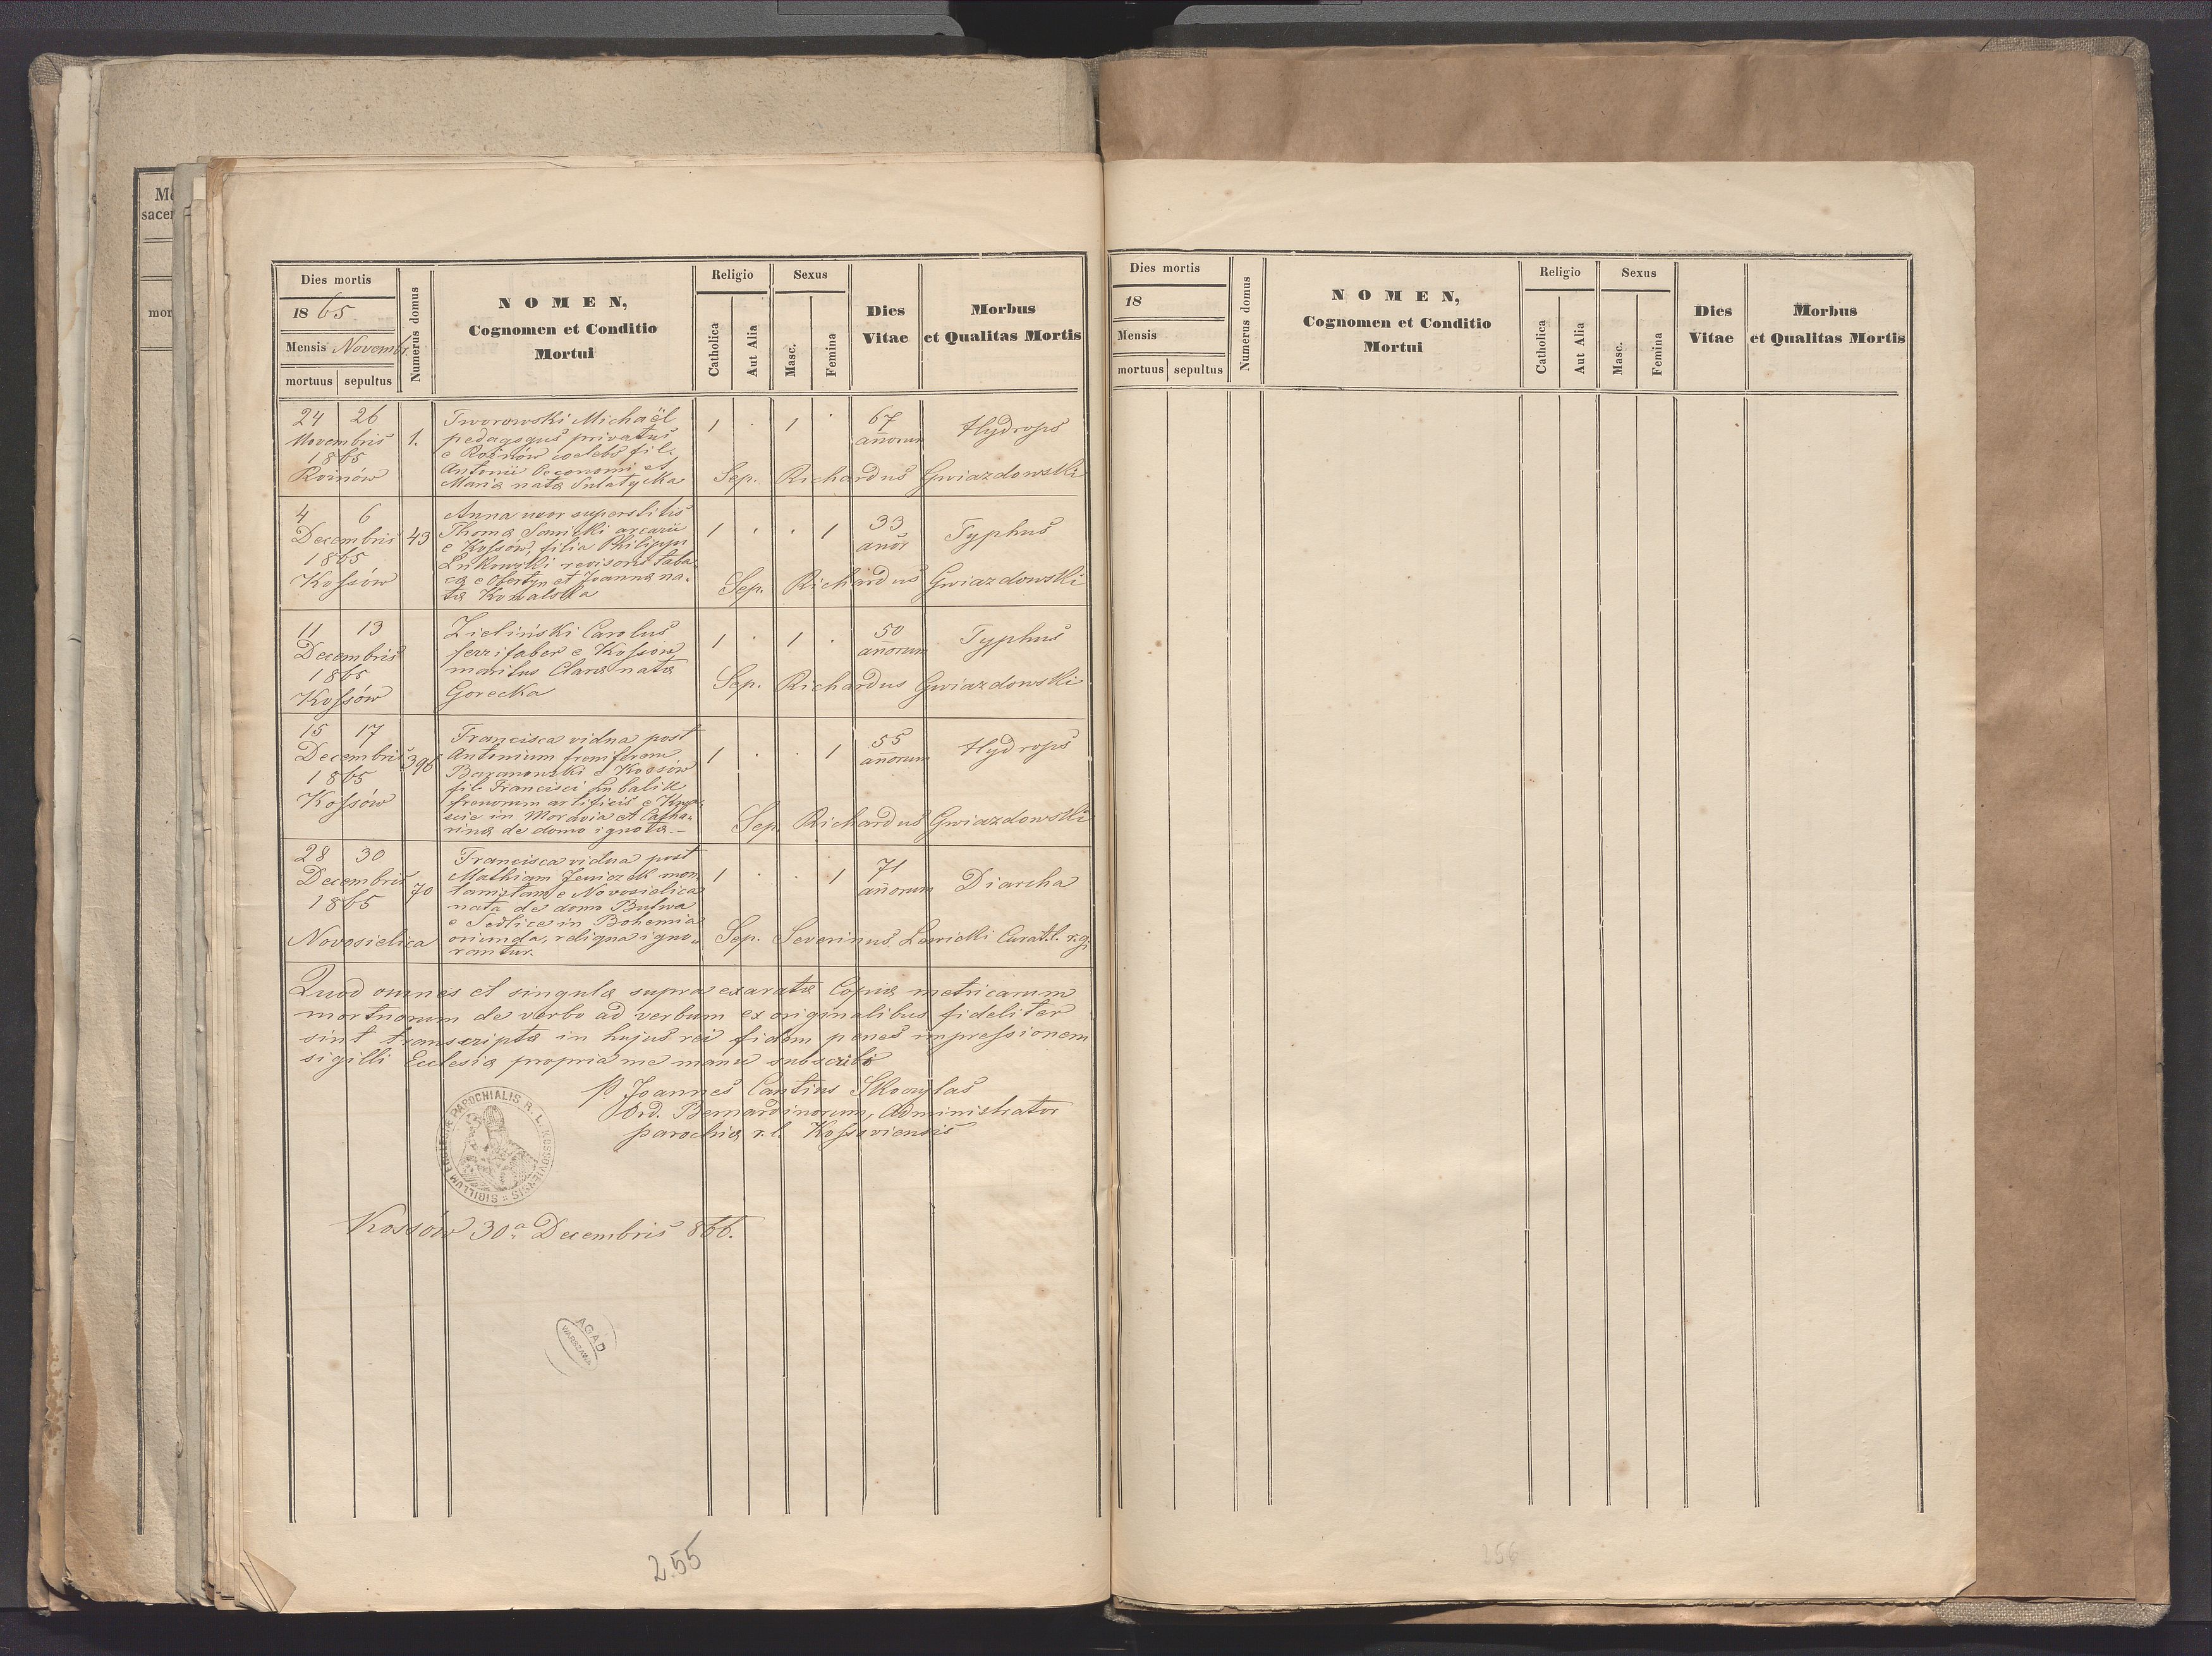 Me
sacer
mor
Dies mortis
1865
Mensis Novembr.
mortuus sepultus
Numerus domus
NOMEN,
Cognomen et Conditio
Mortui
Religio
Catholica
Aut Alia
Sexus
Masc.
Femina
Dies
Vitae
Morbus
et Qualitas Mortis
24 26
Novembris
1865
Rožnów
1.
Tworowski Michaël
pedagogus privatus
e Rožnów coelebs fil.
Antonii Oeconomi et
Mariæ natæ Sulatycka
1 . 1 .
67
anorum
Hydrops
Sep. Richardus Gwiazdowski
4 6
Decembris
1865
Kossów
43
Anna uxor superstitis
Thomæ Sanicki arcarii
e Kossów, filia Philippi
Łukowski revisoris taba
cæ e Obertyn et Joannæ na-
tæ Kowalska
1 . . 1
33
anor
Typhus
Sep. Richardus Gwiazdowski
11 13
Decembris
1865
Kossów
Zieliński Carolus
ferrifaber e Kossów
maritus Claræ natæ
Gorecka
1 . 1 .
50
anorum
Typhus
Sep. Richardus Gwiazdowski
15 17
Decembris
1865
Kossów
396
Francisca vidua post
Antonium freniferum
Baranowski e Kossów
fil. Francisci Kubalik
frenorum artificis e
in Moravia et Catha-
rinæ de domo ignota.-
1 . . 1
55
anorum
Hydrops
Sep. Richardus Gwiazdowski
28 30
Decembris
1865
Novosielica
70
Francisca vidua post
Mathiam Jeniczek mon
tanistam e Novosielica
nata de domo Bulwa
e Sedlice in Bohemia
oriunda, reliqua igno-
rantur.
1 . . 1
71
anorum
Diarcha
Sep. Severinus Lewicki Curat. l. r.g.
Quod omnes et singulæ supra exaratæ Copiæ metricarum
mortuorum de verbo ad verbum ex originalibus fideliter
sint transcriptæ in hujus rei fidem penes impressionem
sigilli Ecclesiæ propria me manu subscribo
P. Joannes Cantius Skoczylas
Ord. Bernardinorum, Administrator
parochiæ r.l. Kossoviensis
SIGILLUM ECCLESIAE PAROCHIALIS R. L. KOSSOVIENSIS
Kossów 30a Decembris 866.
AGAD
WARSZAWA
255
Dies mortis
18
Mensis
mortuus sepultus
Numerus domus
NOMEN,
Cognomen et Conditio
Mortui
Religio
Catholica
Aut Alia
Sexus
Masc.
Femina
Dies
Vitae
Morbus
et Qualitas Mortis
256